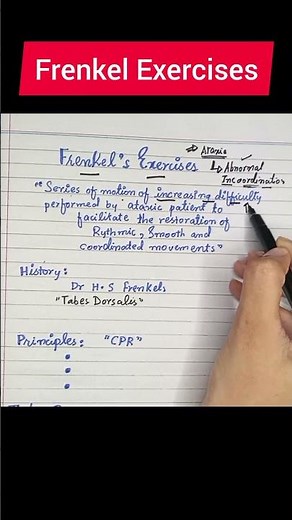 Frenkel Exercises
⇒ Ataxia
Frenkel's Exercises
↳ Abnormal
Incoordination
"Series of motion of increasing difficulty
performed by ataxic patient to
facilitate the restoration of
Rythmic, Smooth and
coordinated movements"
History:
Dr H.S Frenkels
"Tabes Dorsalis"
Principles: "CPR"
•
•
•